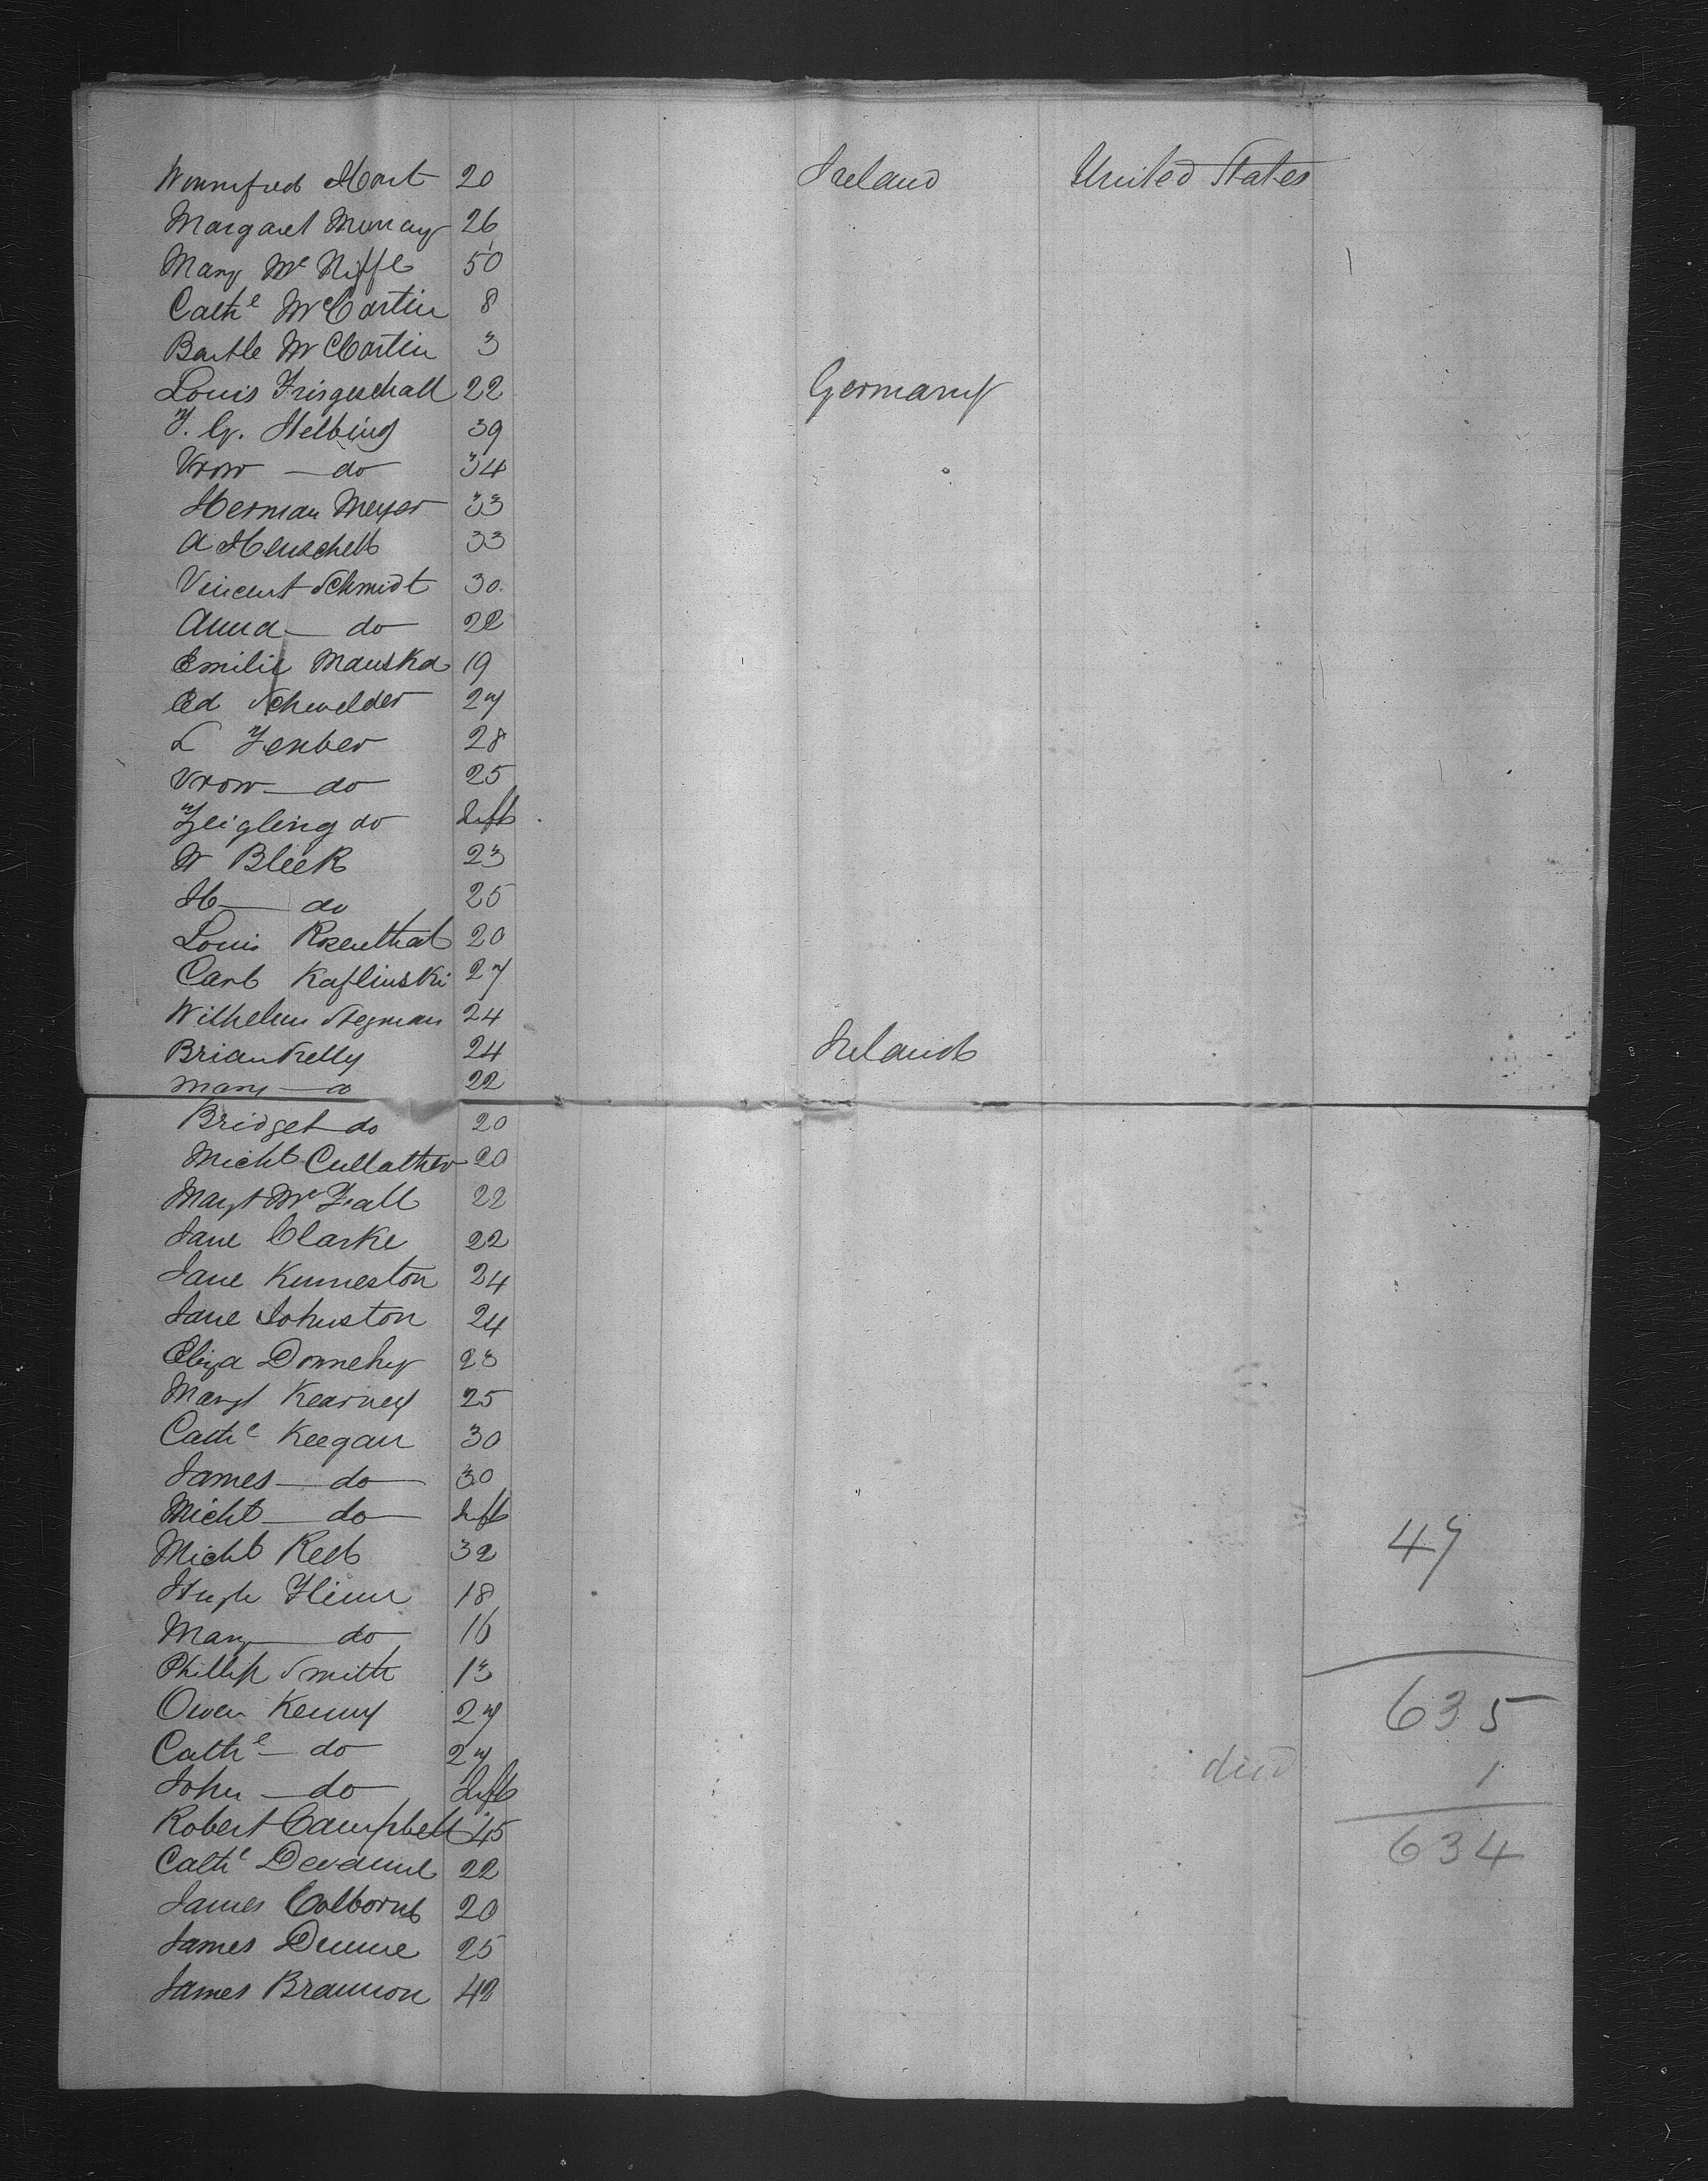 Winnifred Hart 20 Ireland United States
Margaret Murray 26
Mary Mc Niffe 50
Cathe McCartin 8
Bartle McCartin 3
Louis Frisgeschall 22 Germany
F. G. Helbing 39
Vrow — do 34
Herman Meyer 33
A Henschell 33
Vincent Schmidt 30
Anna — do 22
Emilie Mauska 19
Ed Schwelder 27
L Ferber 28
Vrow — do 25
Zeigling do Inft
W Bleek 23
H — do 25
Louis Rosenthal 20
Carl Kaflinski 27
Wilhelm Stegman 24
Brian Kelly 24 Ireland
Mary — do 22
Bridget do 20
Michl Cullather 20
Margt Mc Fall 22
Jane Clarke 22
Jane Kinneston 24
Jane Johnston 24
Eliza Donnehy 23
Margt Kearney 25
Cathe Keegan 30
James — do 30
Michl — do Inft
Michl Reel 32 47
Hugh Flinn 18
Mary — do 16
Phillip Smith 13
Owen Kenny 27 635
Cathe — do 27 died 1
John — do Inft
Robert Campbell 45 634
Cathe Devanne 22
James Colborne 20
James Dunne 25
James Brannon 42